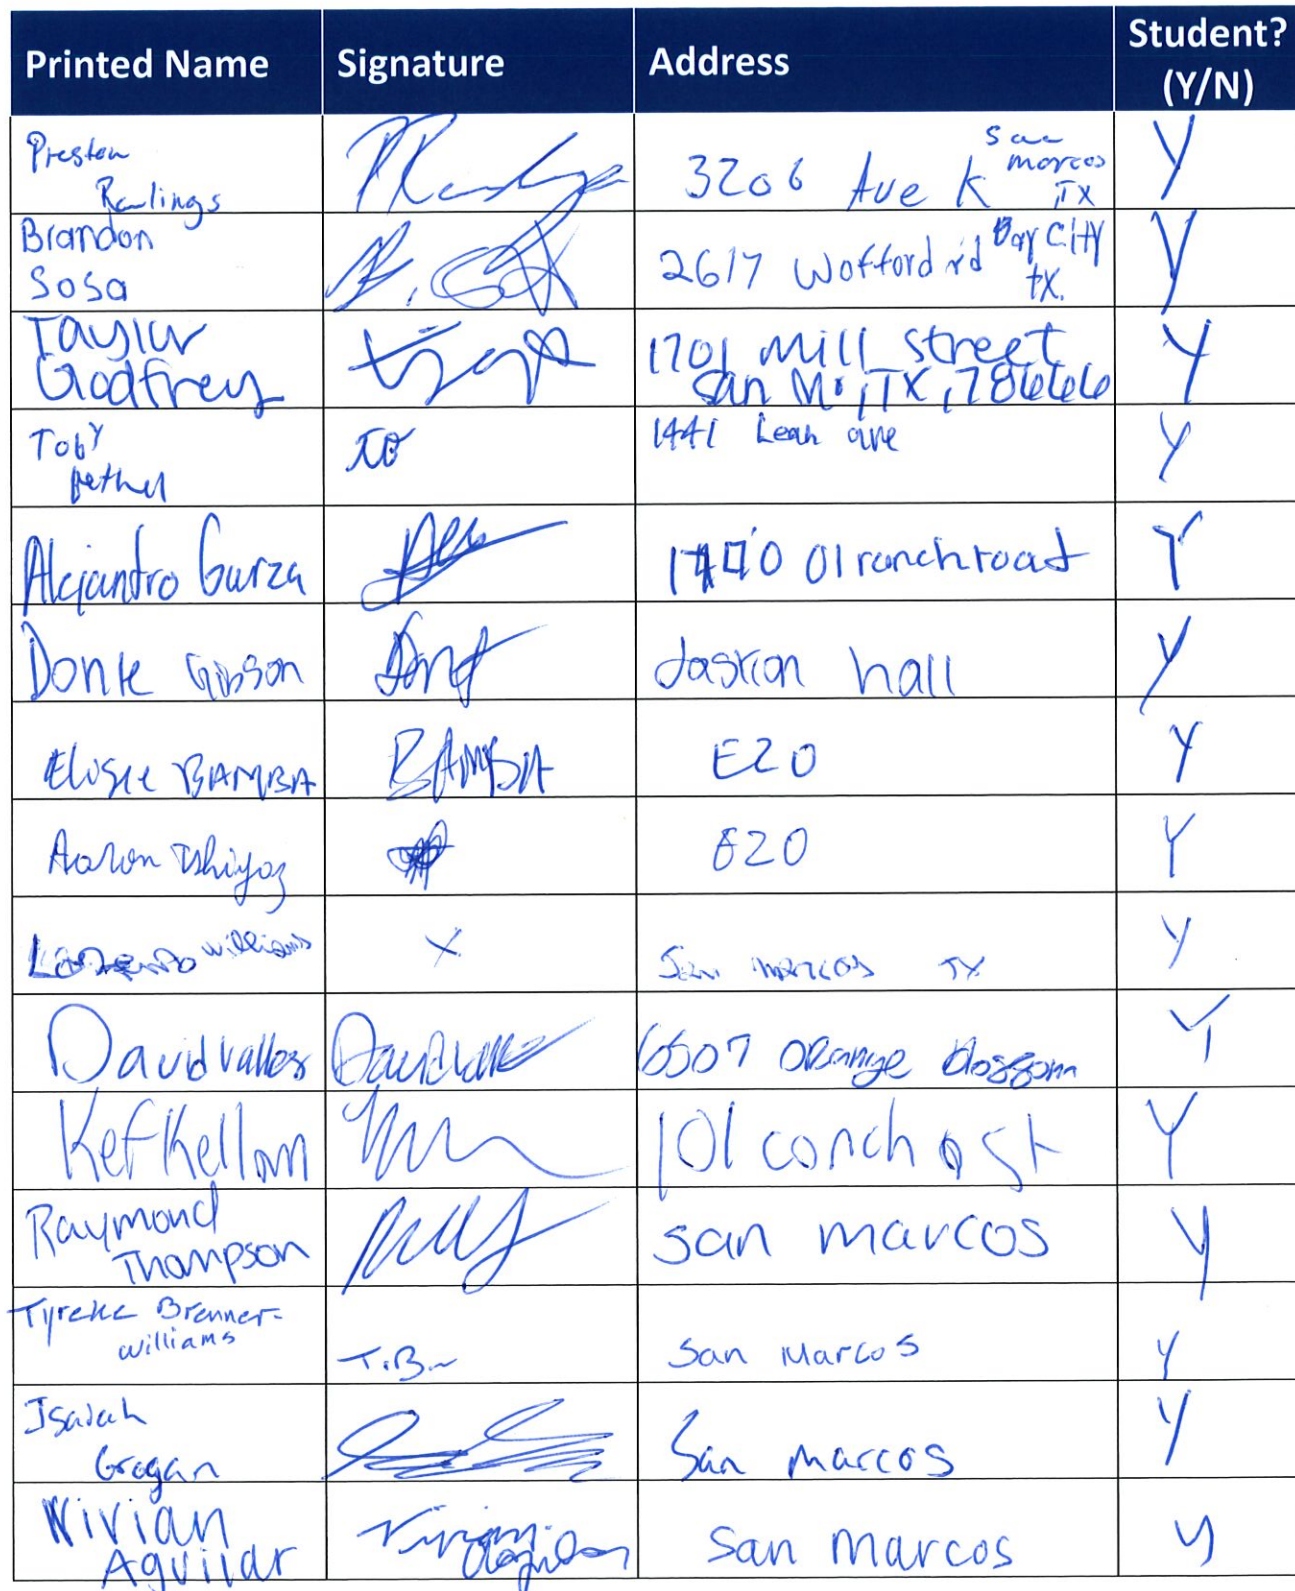 Printed Name Signature Address Student? (Y/N)
Preston Rawlings 3206 Ave K San marcos TX Y
Brandon Sosa B. 2617 Wofford rd Bay City tx. Y
Taylor Godfrey 1701 Mill street San M., TX, 78666 Y
Toby Bethel TB 1441 Leah ave Y
Alejandro Garza ranch road Y
Donte Gibson hall Y
BAMBA BAMBA E20 Y
Aaron E20 Y
Williams X San Marcos TX Y
David Valles Orange blossom Y
Kef Kellam 101 concho st Y
Raymond Thompson san marcos y
Tyreke Brenner-Williams T.B. San Marcos y
Isaiah Grogan San Marcos y
Vivian Aguilar Vivian Aguilar San Marcos y